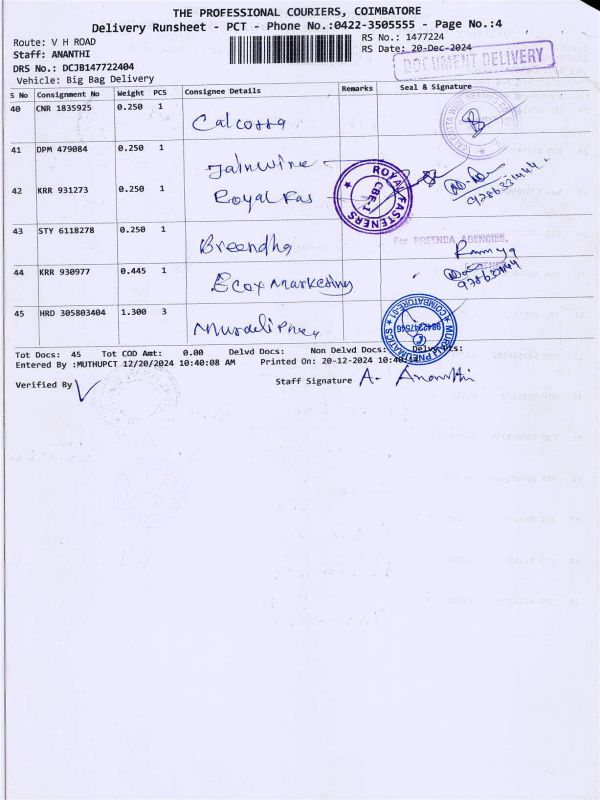 THE PROFESSIONAL COURIERS, COIMBATORE
Delivery Runsheet - PCT - Phone No.:0422-3505555 - Page No.:4
Route: V H ROAD
RS No.: 1477224
Staff: ANANTHI
RS Date: 20-Dec-2024
DOCUMENT DELIVERY
DRS No.: DCJB147722404
Vehicle: Big Bag Delivery
S No Consignment No Weight PCS Consignee Details Remarks Seal & Signature
40 CNR 1835925 0.250 1
41 DPM 479084 0.250 1 Jainwire
42 KRR 931273 0.250 1 Royal Fas
ROYAL FASTENERS CBE-1
43 STY 6118278 0.250 1 Breendha
For BREENDA AGENCIES,
Ramya
44 KRR 930977 0.445 1 Ecox Marketing
45 HRD 305803404 1.300 3
MURALI PNEUMATICS COIMBATORE-01 9842247546
Tot Docs: 45 Tot COD Amt: 0.00 Delvd Docs: Non Delvd Docs:
Entered By :MUTHUPCT 12/20/2024 10:40:08 AM Printed On: 20-12-2024
Verified By
Staff Signature A. Ananthi